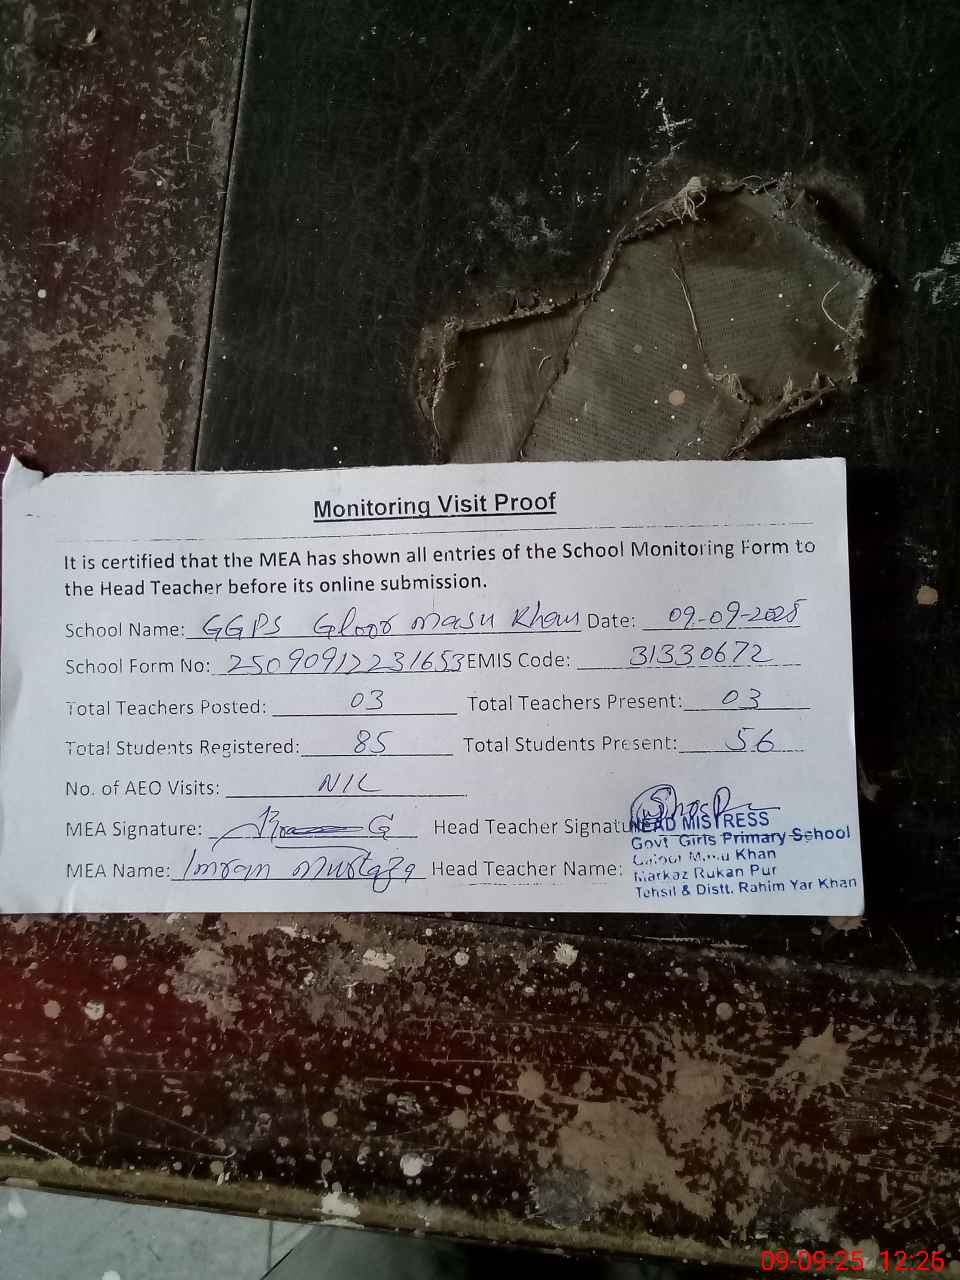 Monitoring Visit Proof
It is certified that the MEA has shown all entries of the School Monitoring Form to
the Head Teacher before its online submission.
School Name: GGPS Gloor Masu Khan Date: 09-09-2025
School Form No: 25090912231653 EMIS Code: 31330672
Total Teachers Posted: 03 Total Teachers Present: 03
Total Students Registered: 85 Total Students Present: 56
No. of AEO Visits: NIL
MEA Signature: Head Teacher Signatu
HEAD MISTRESS
Govt Girls Primary School
MEA Name: Imran Mustafa Head Teacher Name:
Khan
Markaz Rukan Pur
Tehsil & Distt. Rahim Yar Khan
09-09-25 12:26